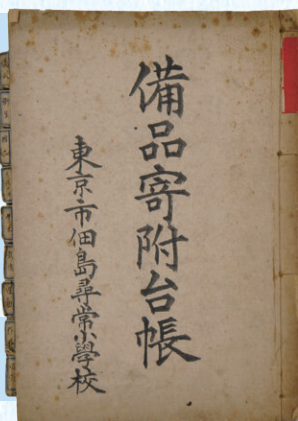 備品寄附台帳
東京市佃島尋常小學校